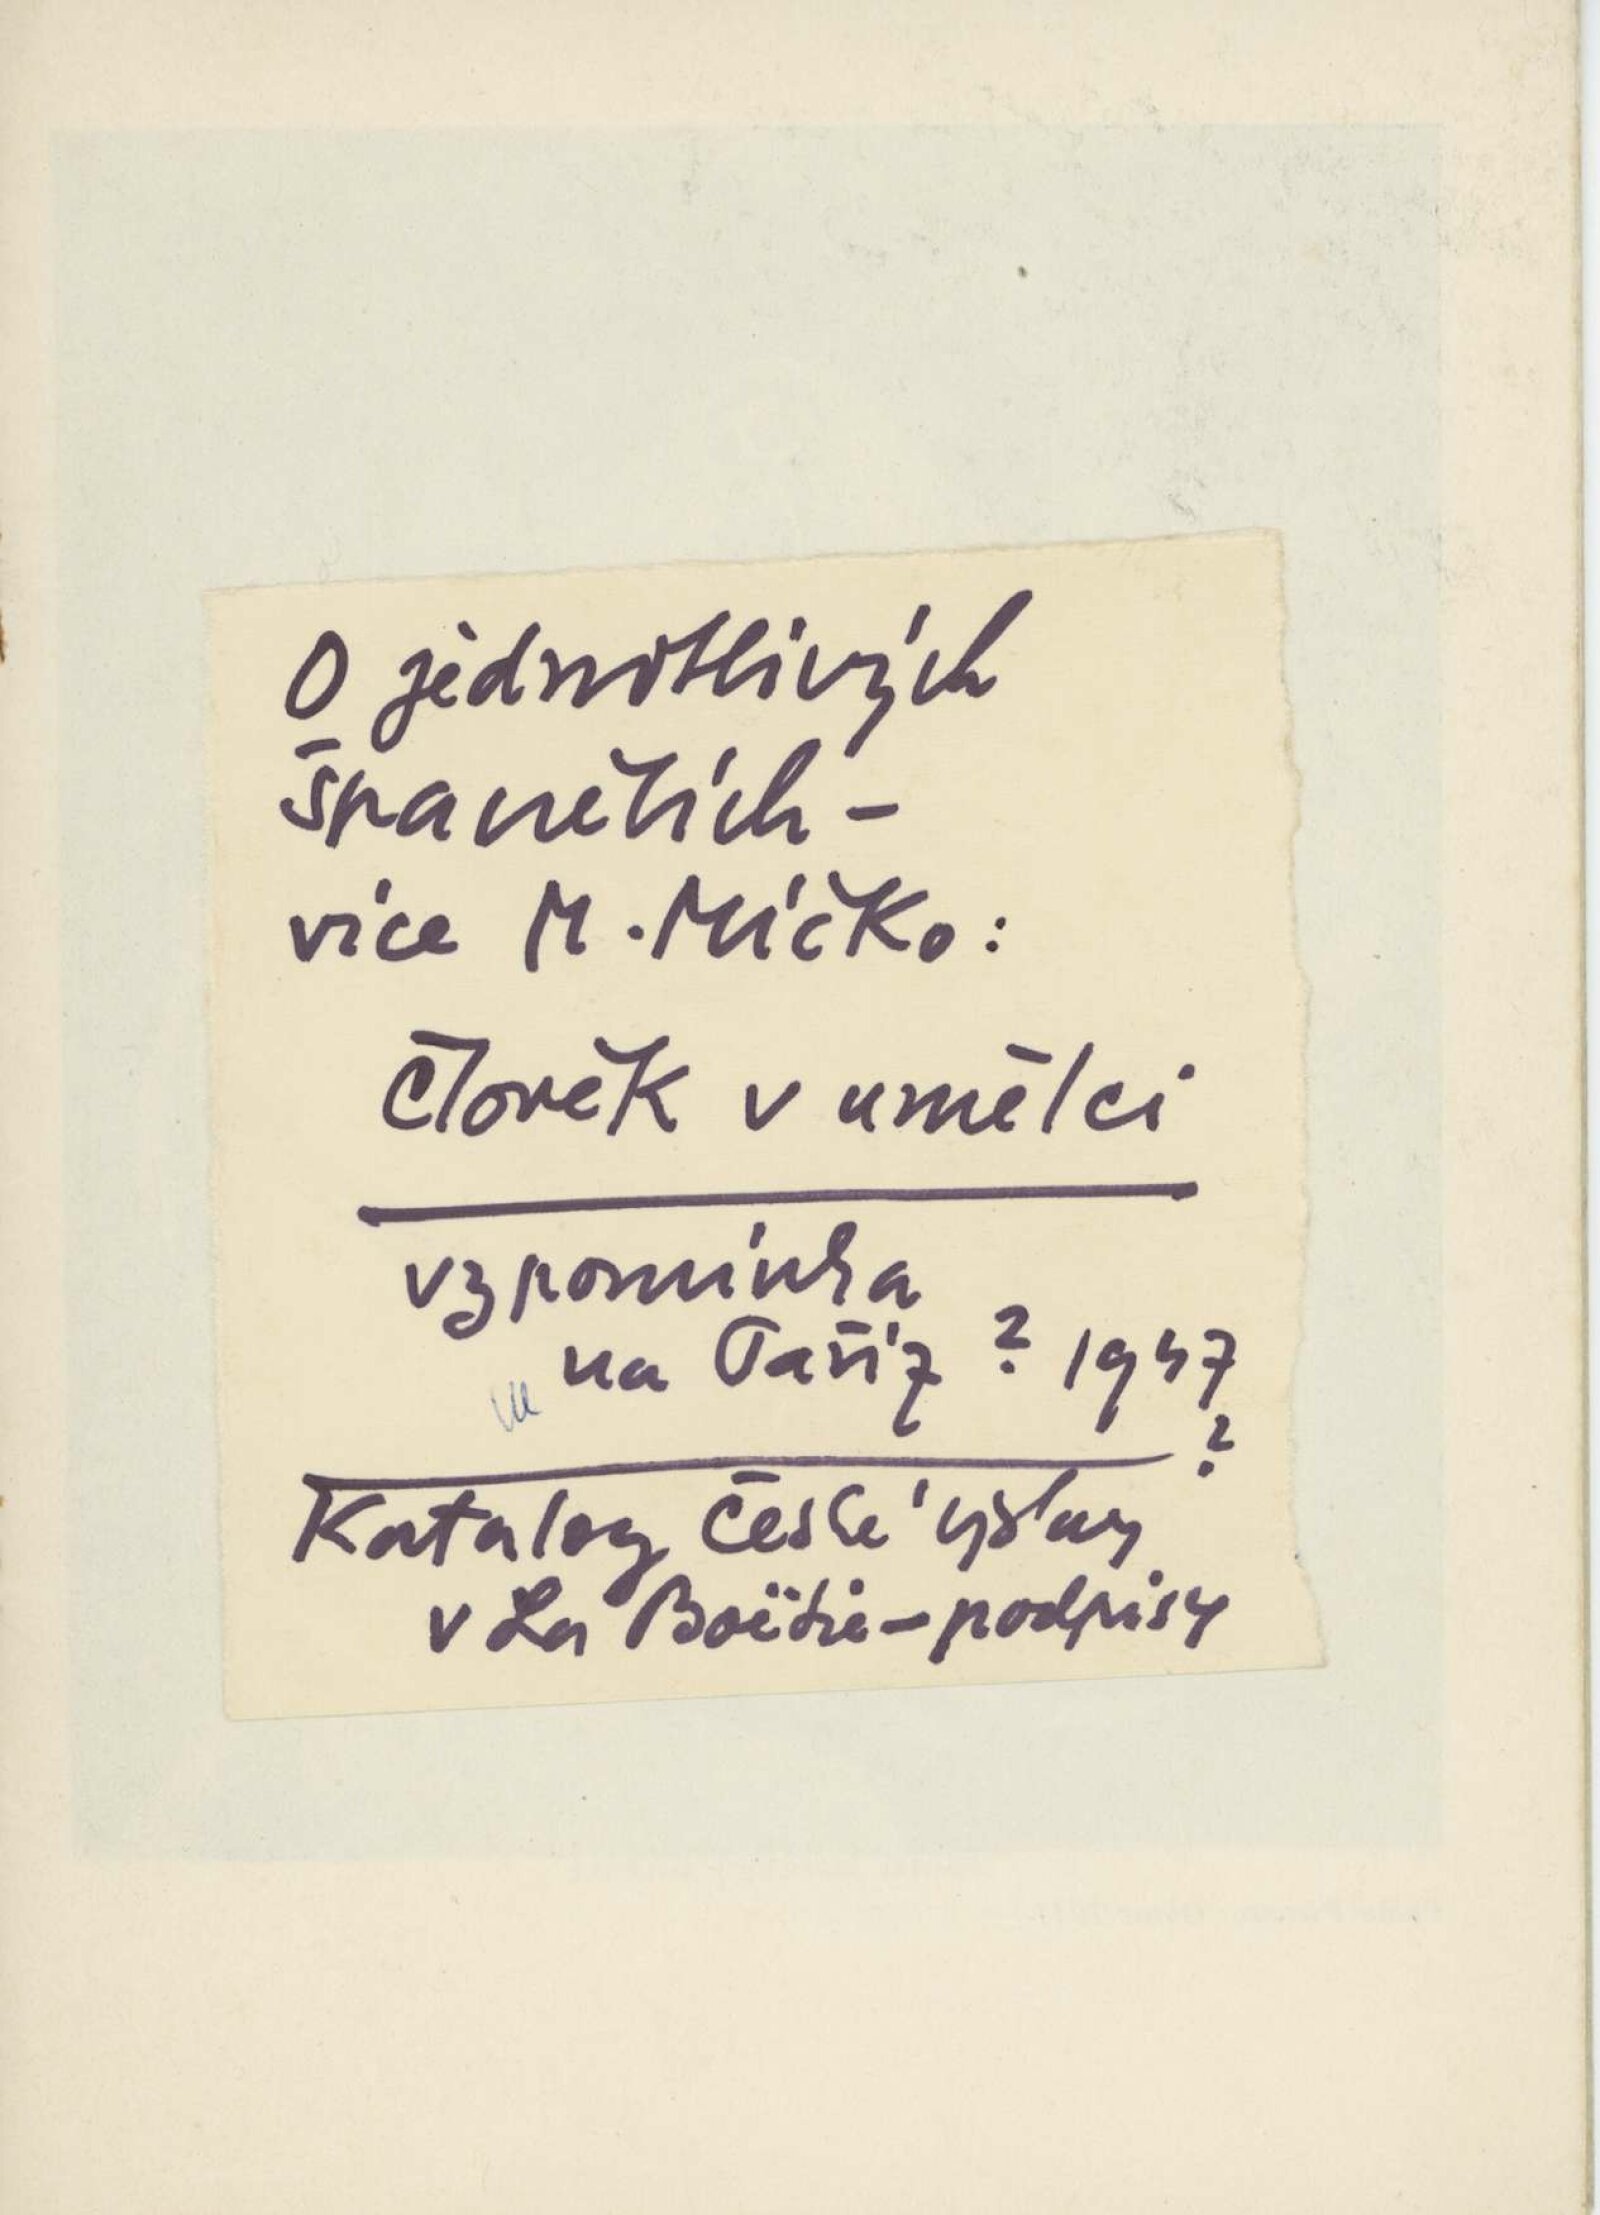 O jednotlivých
španělích –
více M. Míčko:
Člověk v umělci
vzpomínka
na Paříž ? 1947
?
Katalog české výstavy
v La Boëtie – podpisy